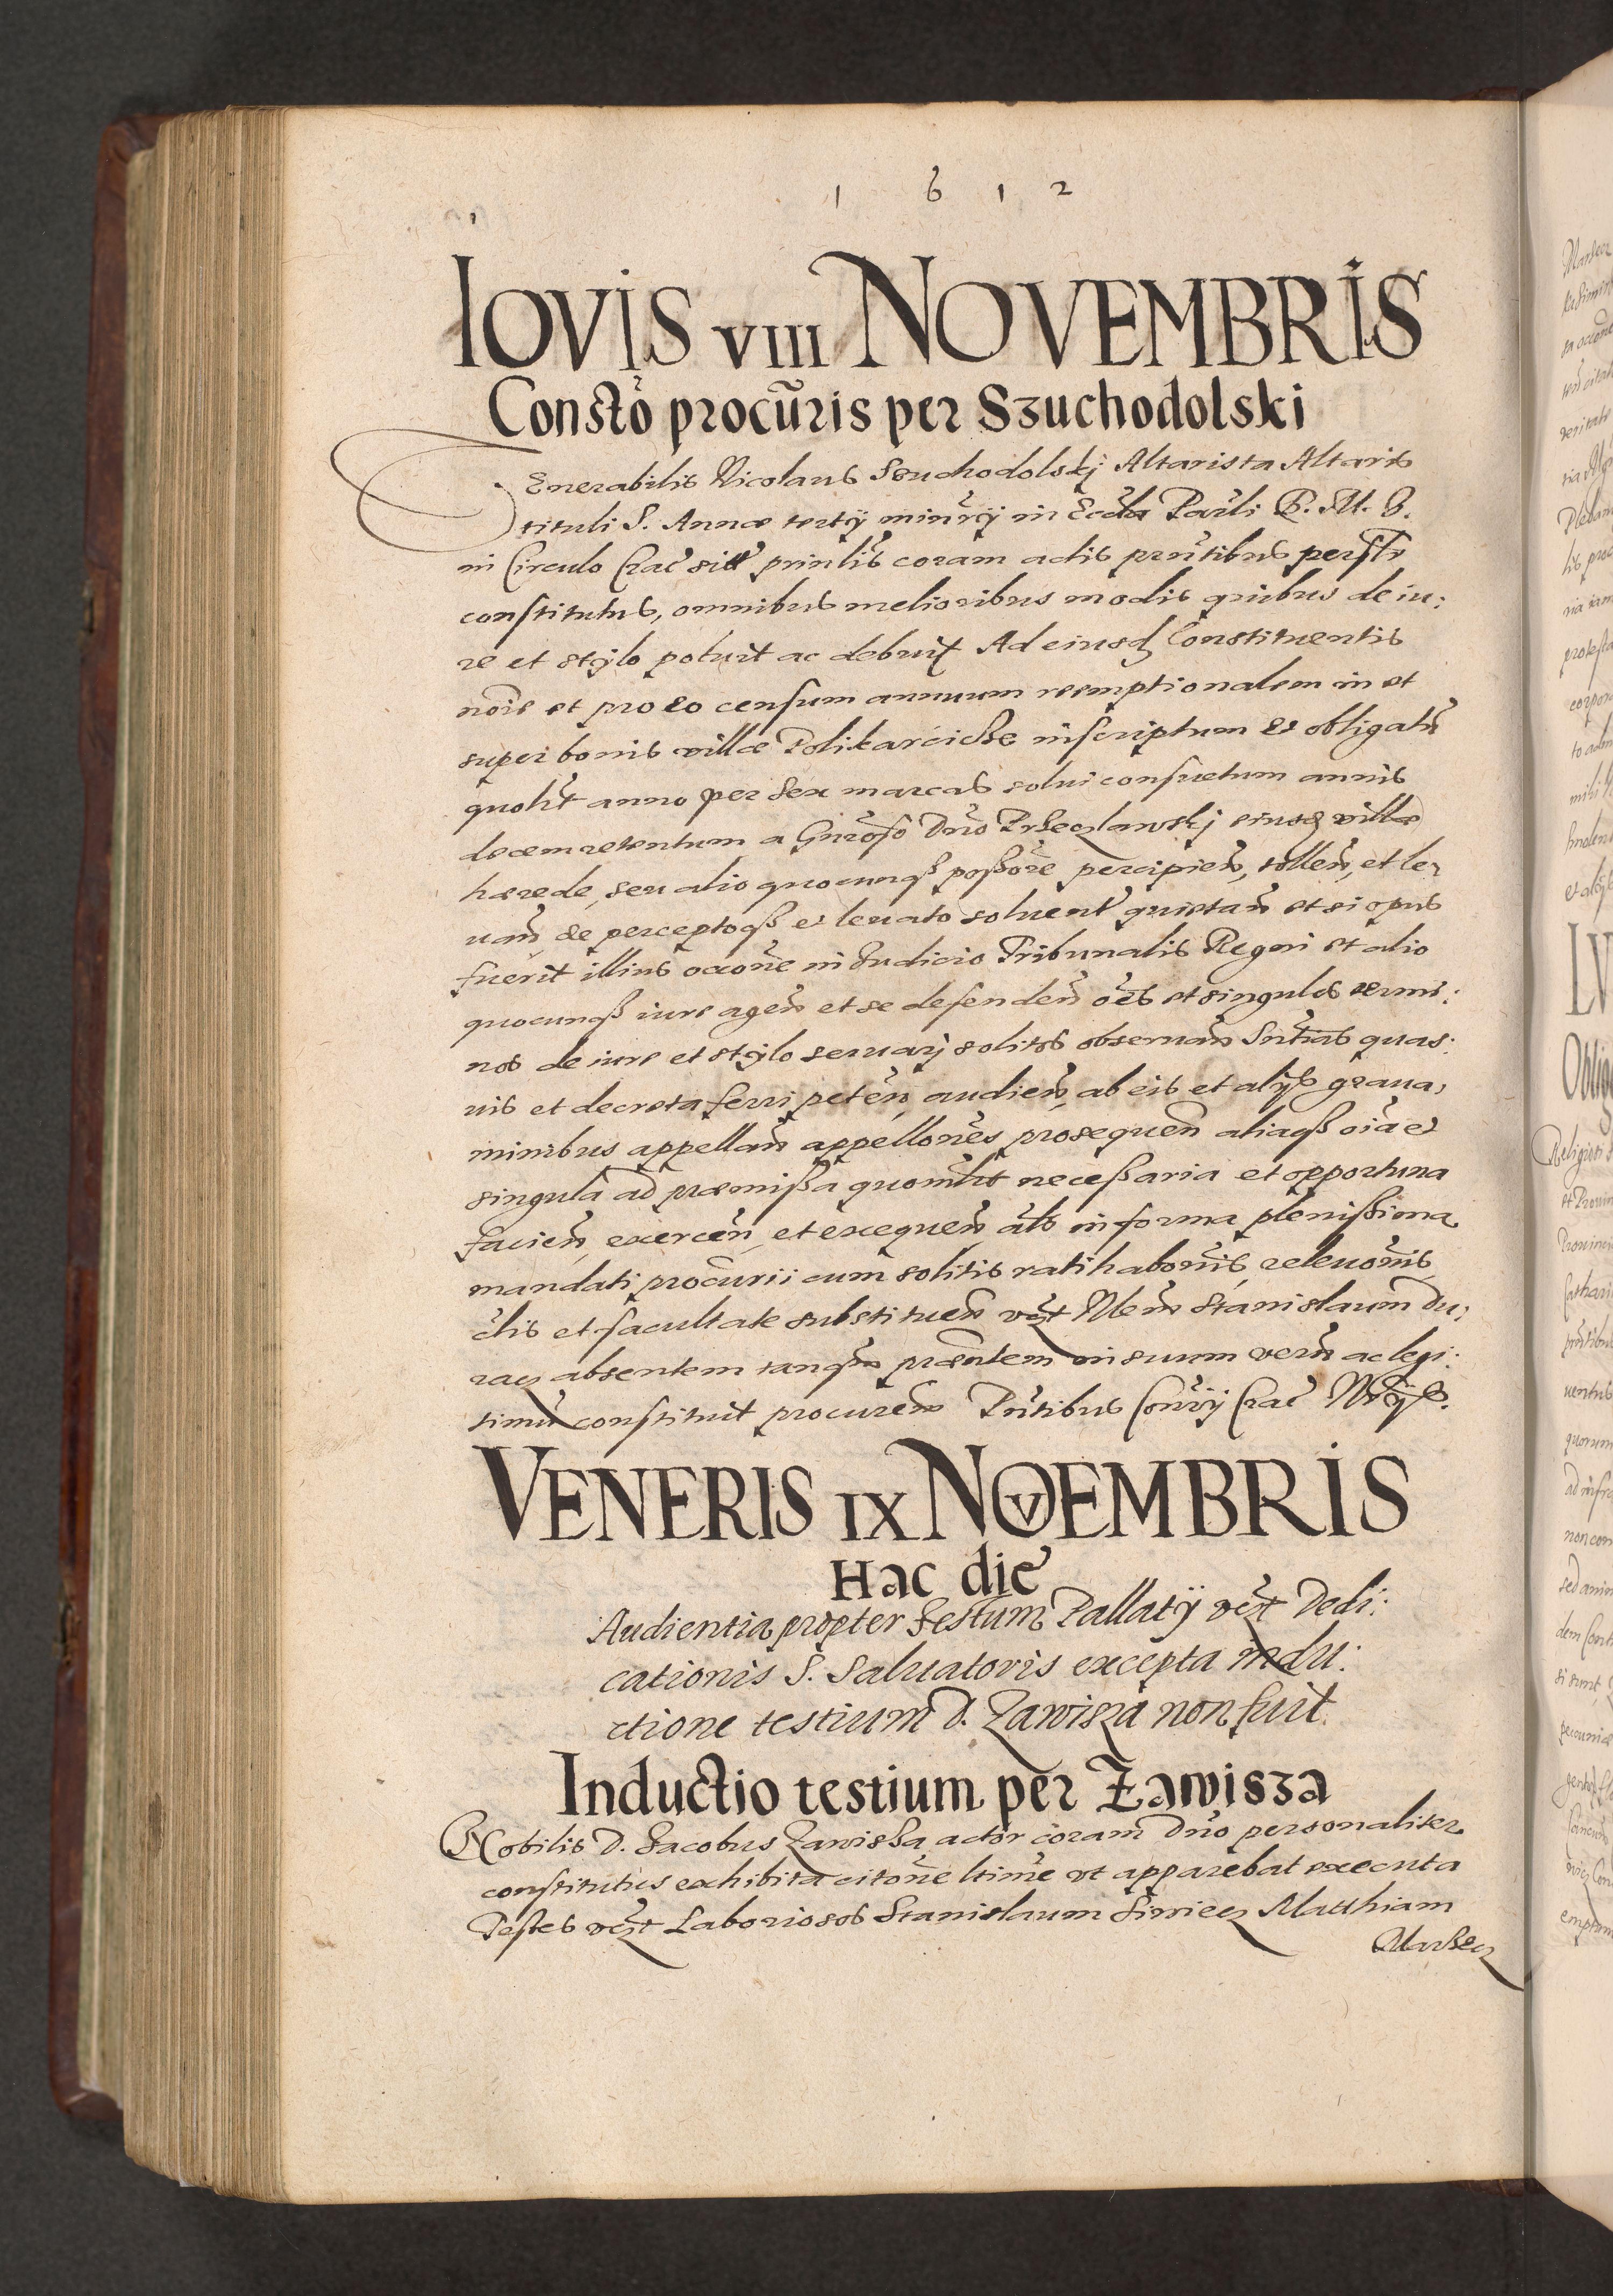 1 6 1 2
IOVIS VIII NOVEMBRIS
Consto procuris per Szuchodolski
Venerabilis Nicolaus Szuchodolskj Altarista Altaris
tituli S. Annæ tertij minrij in Eccla Parli B. M. V.
in Circulo Crac sitt prinlis coram actis prntibus personlr
constitutus, omnibus melioribus modis quibus de iu:
re et stylo potuit ac debuit Ad eiusd Constituentis
nois et pro eo censum annuum reemptionalem in et
super bonis villæ Polikarcicze inscriptum et obligatu
quolit anno per sex marcas solui consuetum annis
decem retentum a Gnroso Dno Przeczlawskj eiusd villæ
hærede, seu alio quocunq possore percipien, tollen, et le,
uan de perceptoq et leuato soluent quietan et si opus
fuerit illius occone in Iudicio Tribunalis Regni et alio
quocunq iure agen et se defenden oes et singulos termi:
nos de iure et stylo seruarj solitos obseruan Sntias quas:
uis et decreta ferri peten, audien, ab eis et alijs graua,
minibus appellan appellones prosequen aliaq oia et
singula ad præmissa quomlit necessaria et opportuna
facien, exercen, et exequen als in forma plenissima
mandati procurii cum solitis ratihabonis, releuonis
clis et facultate substituen vzt Nlem Stanislaum Du,
racz absentem tanqm præntem in suum verum ac legi:
timu constituit procurem Prntibus Conrij Crac Nrijs.
VENERIS IX NOVEMBRIS
Hac die
Audientia propter festum Pallatij vzt Dedi:
cationis S. Saluatoris excepta indu:
ctione testium D. Zawisza non fuit.
Inductio testium per Zawisza
Nobilis D. Iacobus Zawisza actor coram Dno personaliter
constitutus exhibita citone ltime vt apparebat executa
Testes vzt Laboriosos Stanislaum Siwiecz Matthiam